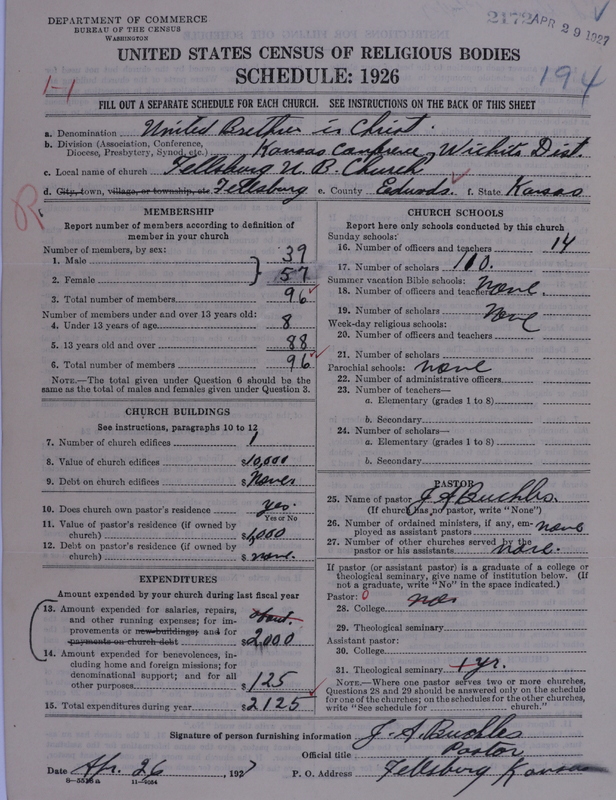 DEPARTMENT OF COMMERCE
BUREAU OF THE CENSUS
WASHINGTON
2172 APR 29 1927
UNITED STATES CENSUS OF RELIGIOUS BODIES
SCHEDULE: 1926
194
1-1
FILL OUT A SEPARATE SCHEDULE FOR EACH CHURCH. SEE INSTRUCTIONS ON THE BACK OF THIS SHEET
a. Denomination United Brethren in Christ.
b. Division (Association, Conference, Diocese, Presbytery, Synod, etc.) Kansas Conference, Wichita Dist.
c. Local name of church Fellsburg U. B. Church
d. City, town, village, or township, etc Fellsburg e. County Edwards. f. State Kansas
R
MEMBERSHIP
Report number of members according to definition of
member in your church
Number of members, by sex:
1. Male 39
2. Female 57
3. Total number of members 96
Number of members under and over 13 years old:
4. Under 13 years of age 8
5. 13 years old and over 88
6. Total number of members 96
NOTE.—The total given under Question 6 should be
same as the total of males and females given under Question 3.
CHURCH BUILDINGS
See instructions, paragraphs 10 to 12
7. Number of church edifices 1
8. Value of church edifices $10,000
9. Debt on church edifices $
10. Does church own pastor's residence yes.
Yes or No
11. Value of pastor's residence (if owned by
church) $1,000
12. Debt on pastor's residence (if owned by
church) $ none.
EXPENDITURES
Amount expended by your church during last fiscal year
13. Amount expended for salaries, repairs,
and other running expenses; for im- about
provements or new buildings; and for
payments on church debt $2,000
14. Amount expended for benevolences, in-
cluding home and foreign missions; for
denominational support; and for all
other purposes $125
15. Total expenditures during year $2125
CHURCH SCHOOLS
Report here only schools conducted by this church
Sunday schools:
16. Number of officers and teachers 14
17. Number of scholars 110.
Summer vacation Bible schools:
18. Number of officers and teachers none.
19. Number of scholars none
Week-day religious schools:
20. Number of officers and teachers
21. Number of scholars
Parochial schools: none
22. Number of administrative officers
23. Number of teachers—
a. Elementary (grades 1 to 8)
b. Secondary
24. Number of scholars—
a. Elementary (grades 1 to 8)
b. Secondary
PASTOR
25. Name of pastor J A Buckles.
(If church has no pastor, write "None")
26. Number of ordained ministers, if any, em-
ployed as assistant pastors none
27. Number of other churches served by the
pastor or his assistants none.
If pastor (or assistant pastor) is a graduate of a college or
theological seminary, give name of institution below. (If
not a graduate, write "No" in the space indicated.)
Pastor: 0
28. College
29. Theological seminary
Assistant pastor:
30. College
31. Theological seminary 1 yr.
NOTE.—Where one pastor serves two or more churches,
Questions 28 and 29 should be answered only on the schedule
for one of the churches; on the schedules for the other churches,
write "See schedule for church."
Signature of person furnishing information J. A. Buckles
Official title Pastor
Date Apr. 26, 1927 P. O. Address Fellsburg Kansas
8-5518a 11-9084